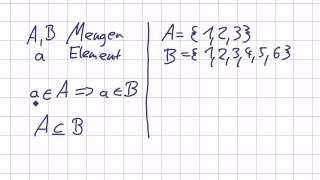 A, B Mengen
a Element
a ∈ A ⟹ a ∈ B
A ⊆ B
A = { 1, 2, 3 }
B = { 1, 2, 3, 4, 5, 6 }